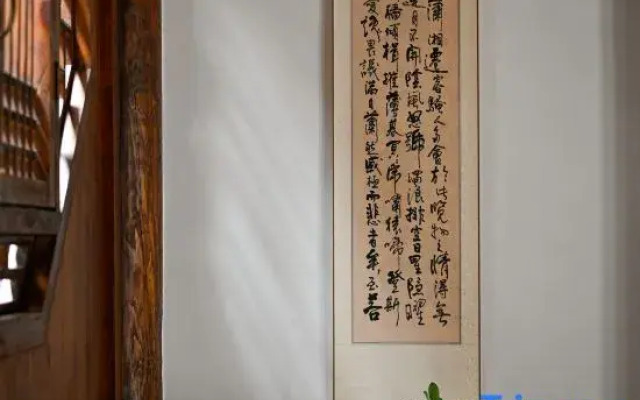 瀟湘遷客騷人多會於此覽物之情得無
月不開陰風怒號濁浪排空日星隱曜
檣傾楫摧薄暮冥々虎嘯猿啼登斯
憂讒畏譏滿目蕭然感極而悲者矣至若